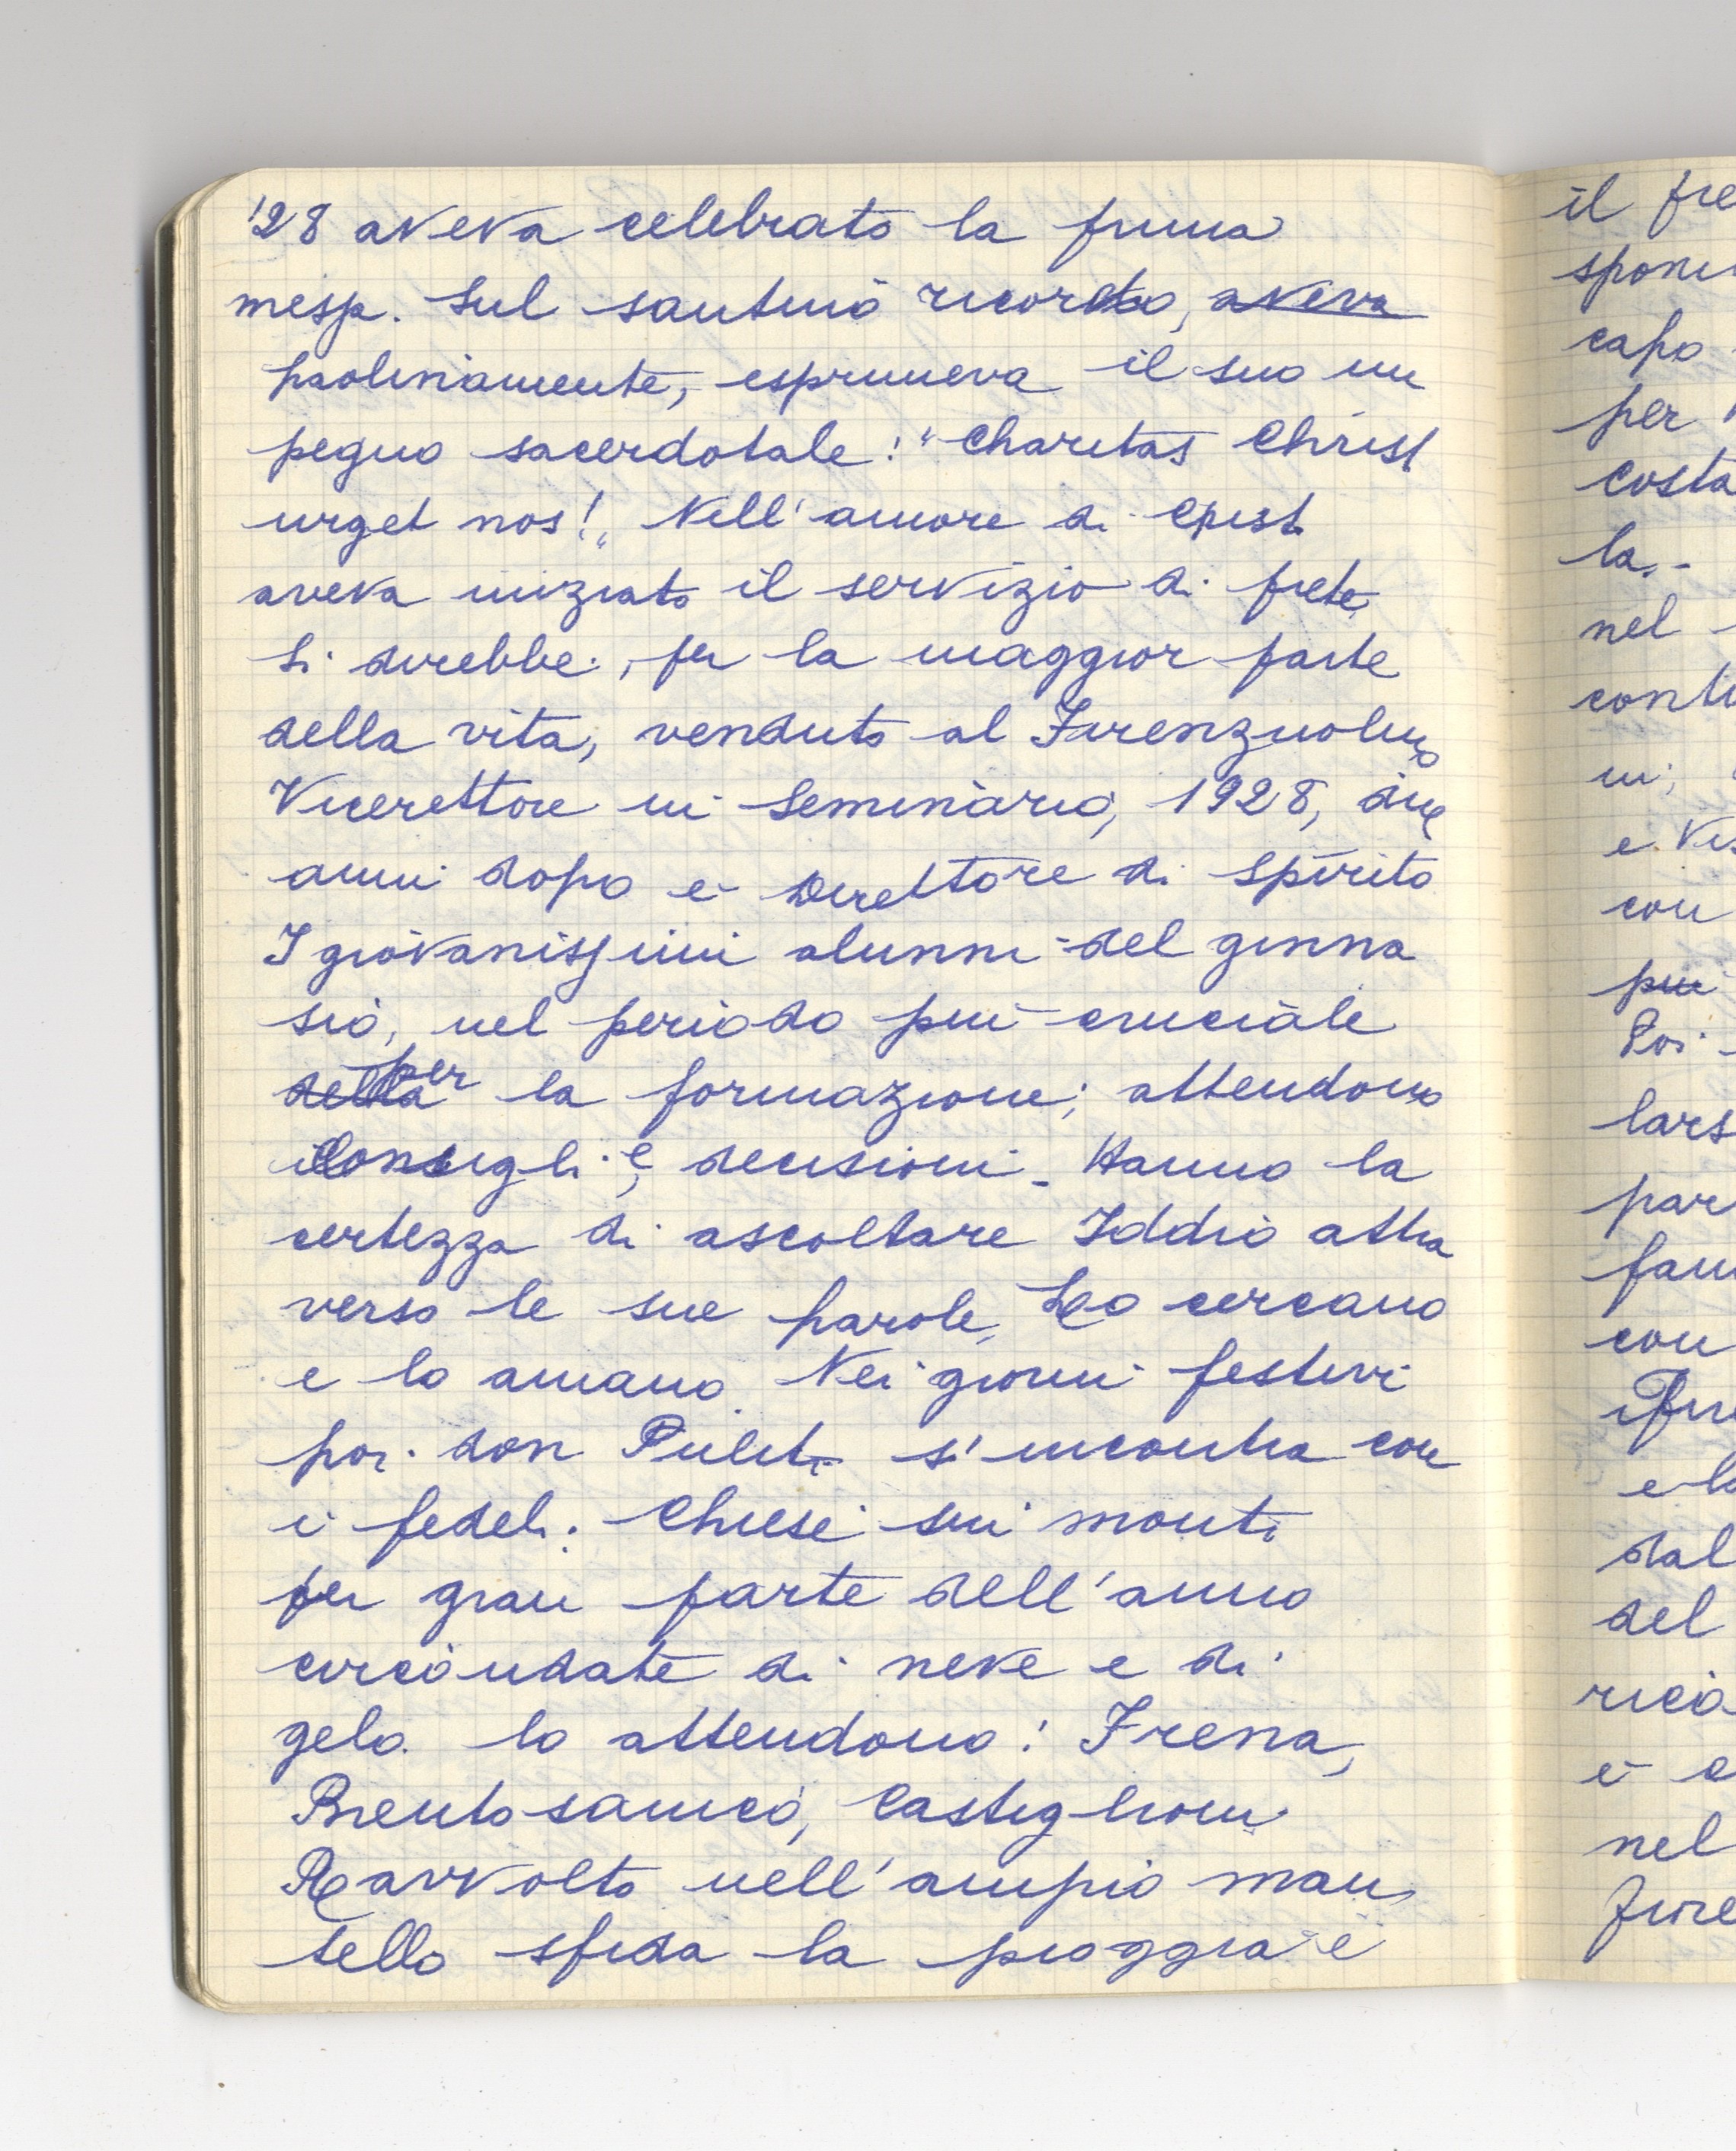 '28 aveva celebrato la prima
messa. Sul santino ricordo, aveva
paolinamente, esprimeva il suo im
pegno sacerdotale: "Charitas Christi
urget nos!" Nell'amore di Cristo
aveva iniziato il servizio di prete,
Si direbbe, per la maggior parte
della vita, venduto al Firenzuolino
Vicerettore in Seminario, 1928, due
anni dopo è Direttore di Spirito
I giovanissimi alunni del ginna
sio, nel periodo più cruciale
della per la formazione; attendono
consigli e decisioni. Hanno la
certezza di ascoltare Iddio attra
verso le sue parole. Lo cercano
e lo amano. Nei giorni festivi
poi don Puliti s'incontra con
i fedeli. Chiese sui monti
per gran parte dell'anno
circondate di neve e di
gelo lo attendono: Frena,
Brentosanico, Castiglioni
Ravvolto nell'ampio man
tello sfida la pioggia e
il fre
capo
per
costa
la.-
nel
e
con
più
Poi
lars
par
con
e lo
dal
del
è
nel